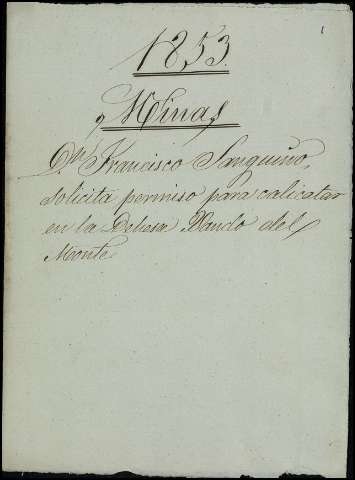 1
1853.
Minas
Dn. Francisco Sanguino,
solicita permiso para calicatar
en la Dehesa del
Monte